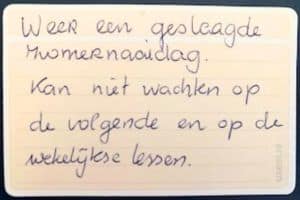 Weer een geslaagde
zomernaaidag.
Kan niet wachten op
de volgende en op de
wekelijkse lessen.